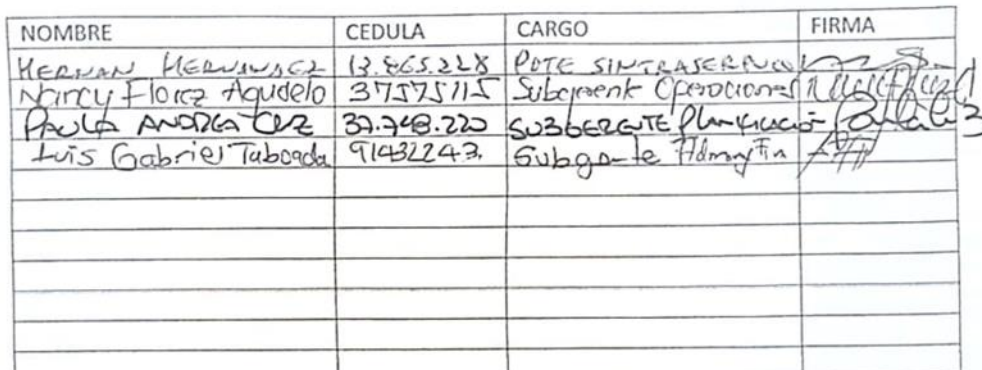 NOMBRE CEDULA CARGO FIRMA
HERNAN HERNANDEZ 13.865.228 PDTE SINTRASERPUCOL
Nancy Florez Agudelo 37575115 Subgerente Operaciones
PAULA ANDREA CRUZ 37.748.220 SUBGERENTE Planificación Paula Cruz
Luis Gabriel Taboada 91432243. Subgte Admon y Fin